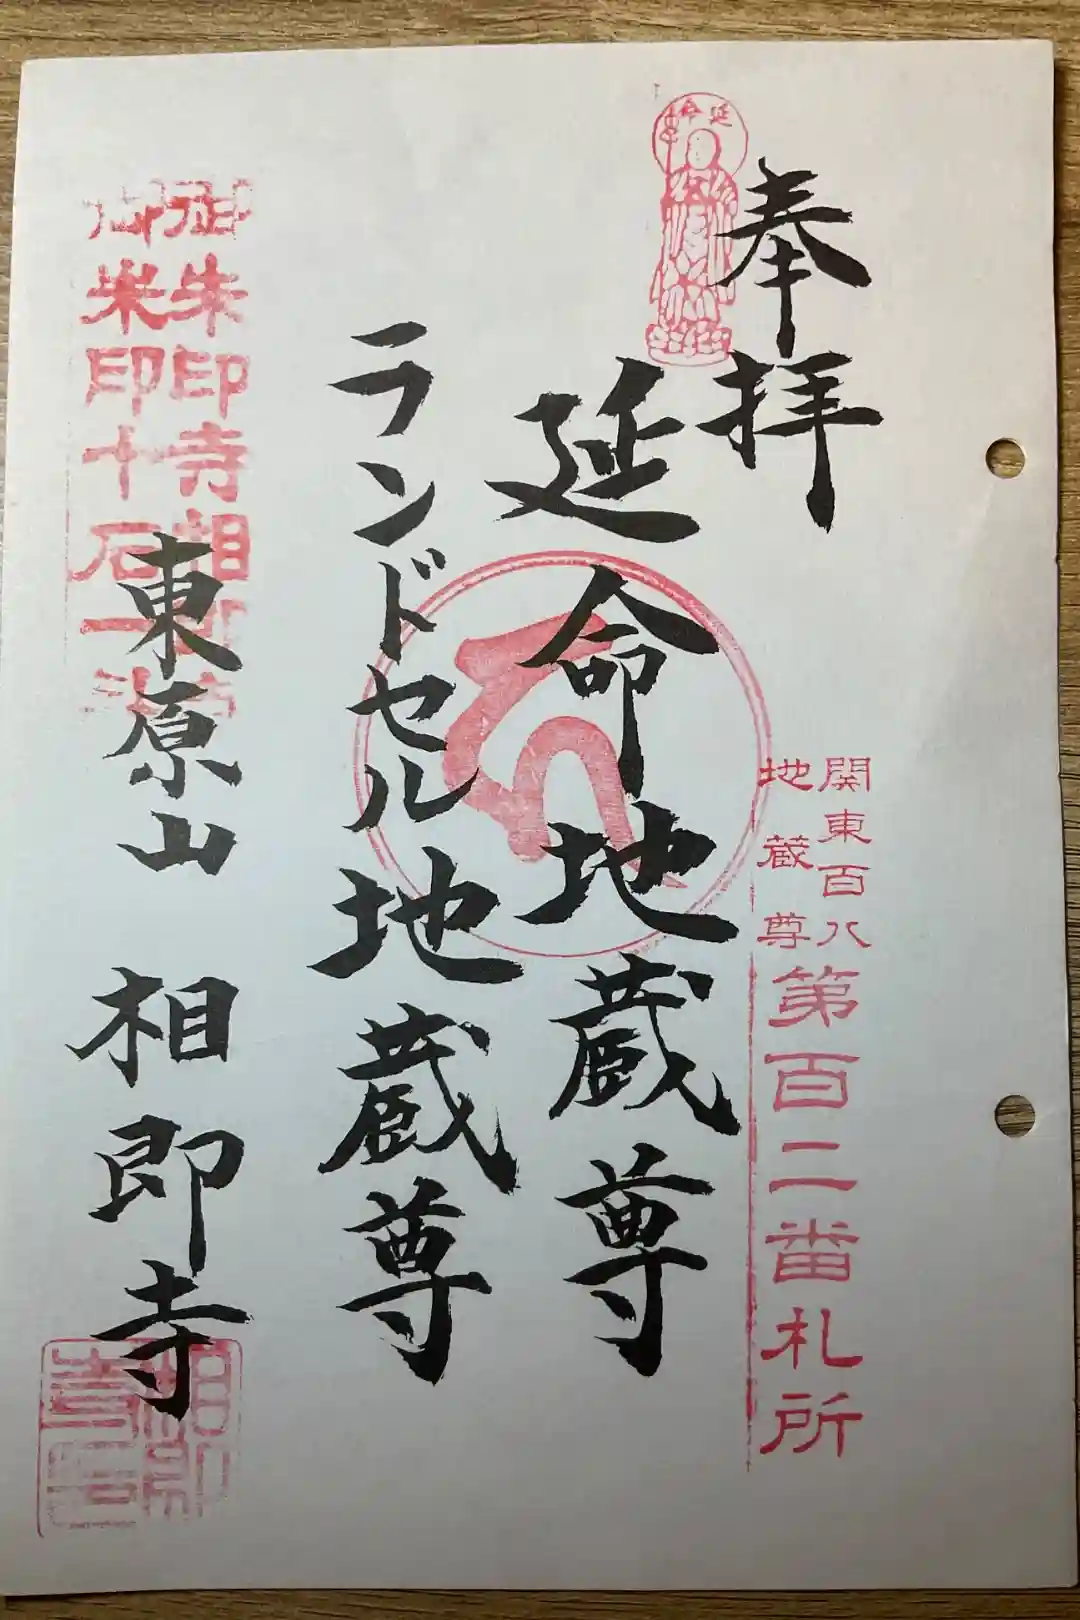 奉拝
延命
関東百八
地蔵尊
第百二番札所
延命地蔵尊
ランドセル地蔵尊
御朱印寺相即寺
御朱印十石一斗
東原山 相即寺